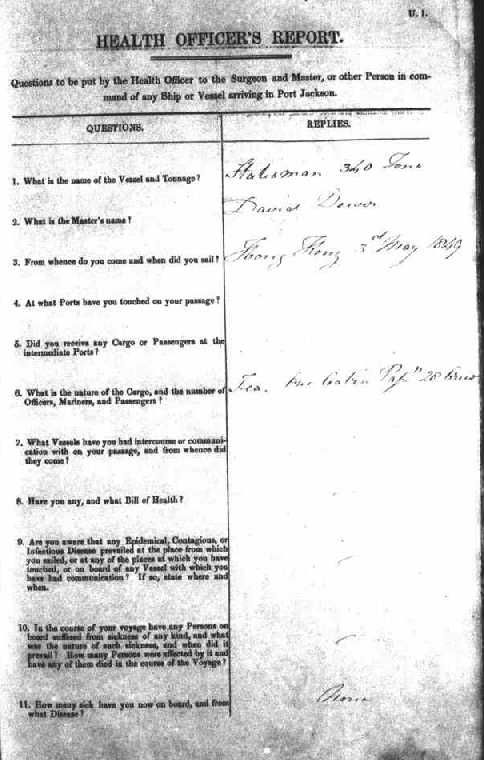 U. 1.
HEALTH OFFICER'S REPORT.
Questions to be put by the Health Officer to the Surgeon and Master, or other Person in com-
mand of any Ship or Vessel arriving in Port Jackson.
QUESTIONS.
REPLIES.
1. What is the name of the Vessel and Tonnage?
Statesman 340 Tons
2. What is the Master's name?
3. From whence do you come and when did you sail?
Hong Kong 3rd May 1849
4. At what Ports have you touched on your passage?
5. Did you receive any Cargo or Passengers at the
intermediate Ports?
6. What is the nature of the Cargo, and the number of
Officers, Mariners, and Passengers?
Tea. One Cabin Pasr 28 Crew
7. What Vessels have you had intercourse or communi-
cation with on your passage, and from whence did
they come?
8. Have you any, and what Bill of Health?
9. Are you aware that any Epidemical, Contagious, or
Infectious Disease prevailed at the place from which
you sailed, or at any of the places at which you have
touched, or on board of any Vessel with which you
have had communication? If so, state where and
when.
10. In the course of your voyage have any Persons on
board suffered from sickness of any kind, and what
was the nature of such sickness, and when did it
prevail? How many Persons were affected by it and
have any of them died in the course of the Voyage?
11. How many sick have you now on board, and from
what Disease?
None